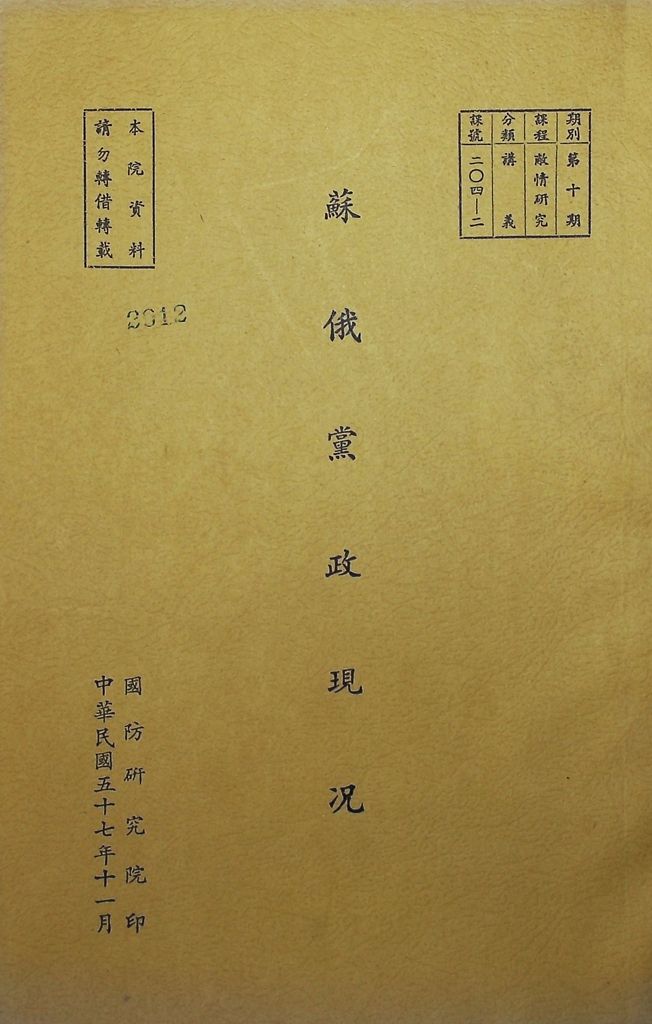 期別 第十期
課程 敵情研究
分類 講義
課號 二〇四—二
蘇俄黨政現况
本院資料
請勿轉借轉載
2912
國防研究院印
中華民國五十七年十一月